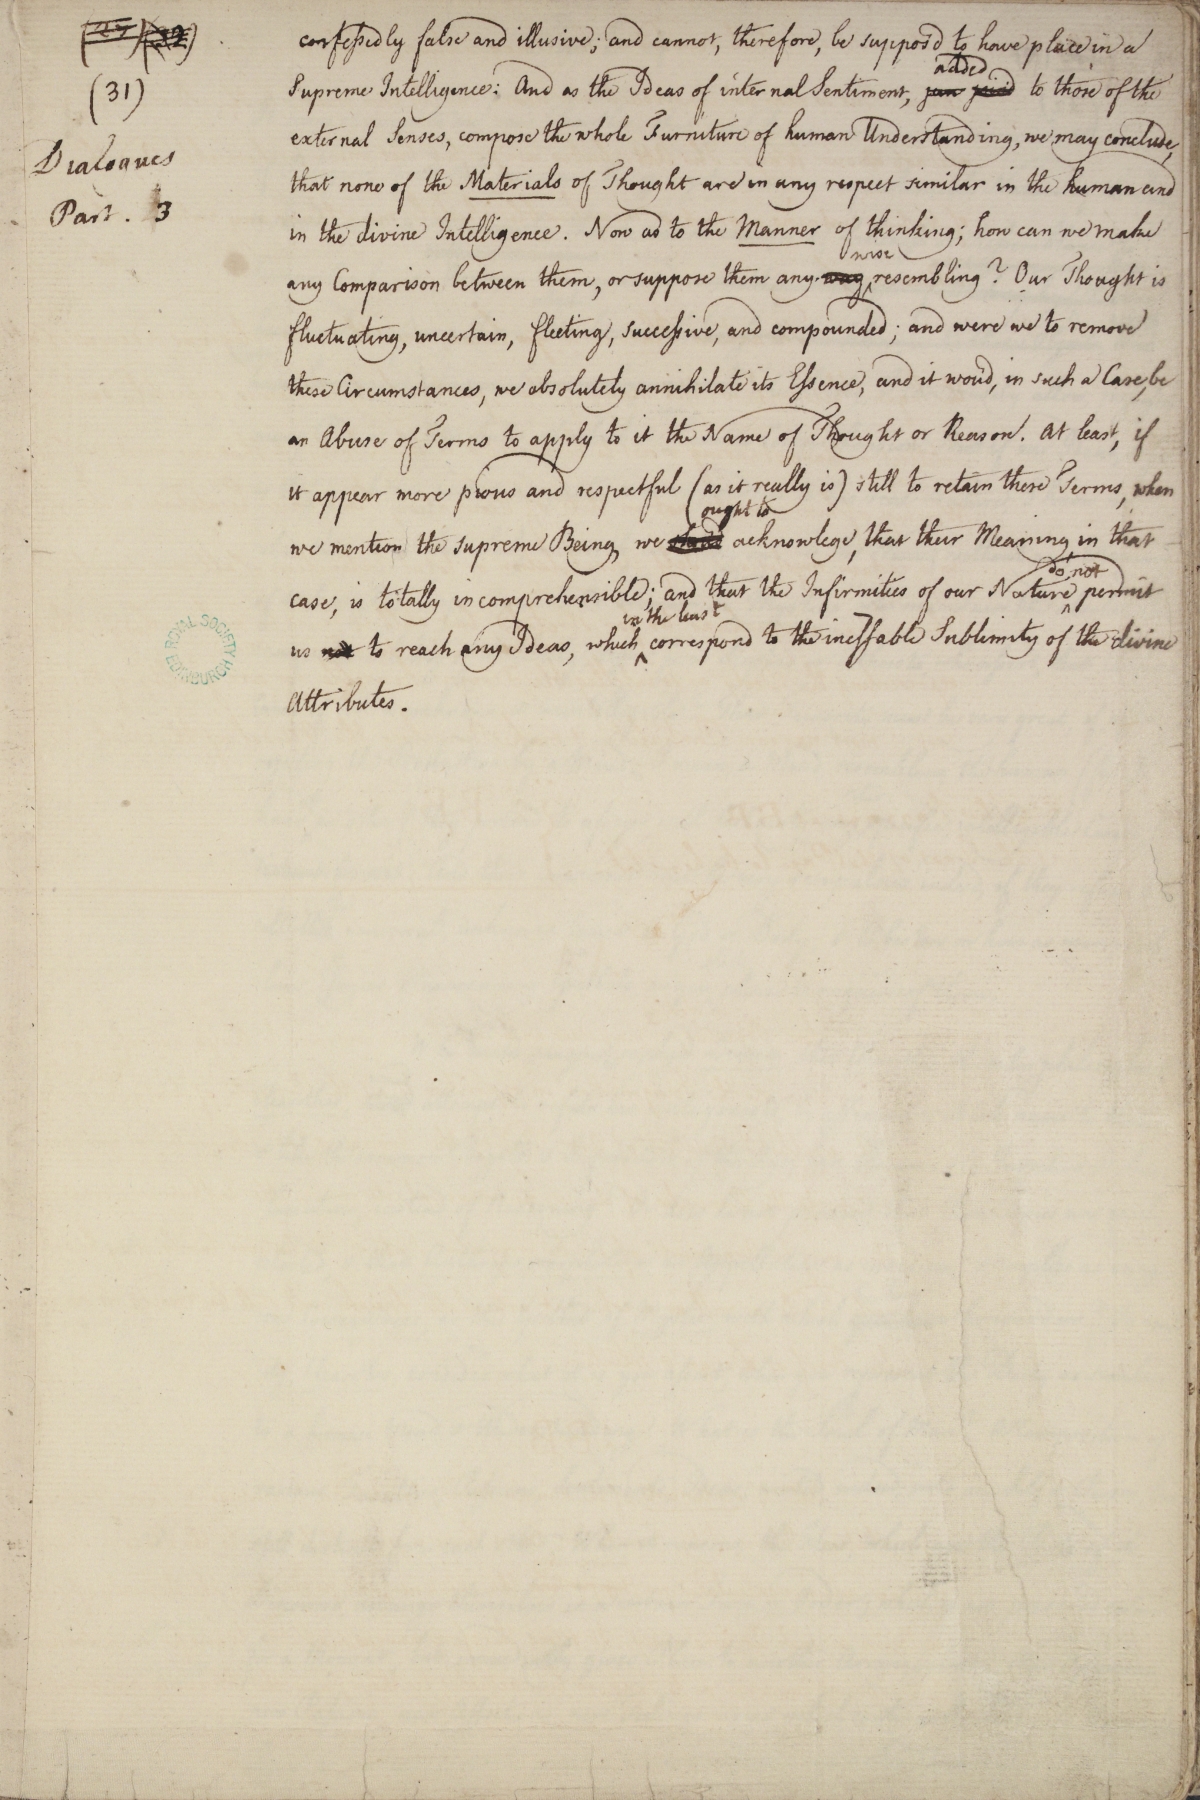 (31)
Dialogues
Part. 3
confessedly false and illusive; and cannot, therefore, be suppos'd to have place in a
added
Supreme Intelligence: And as the Ideas of internal Sentiment, to those of the
external Senses, compose the whole Furniture of human Understanding, we may conclude,
that none of the Materials of Thought are in any respect similar in the human and
in the divine Intelligence. Now as to the Manner of thinking; how can we make
wise
any Comparison between them, or suppose them any way resembling? Our Thought is
fluctuating, uncertain, fleeting, successive, and compounded; and were we to remove
these Circumstances, we absolutely annihilate its Essence, and it wou'd, in such a Case, be
an Abuse of Terms to apply to it the Name of Thought or Reason. At least, if
it appear more pious and respectful (as it really is) still to retain these Terms, when
ought to
we mention the supreme Being, we acknowlege, that their Meaning, in that
do not
case, is totally incomprehensible; and that the Infirmities of our Nature permit
in the least
us not to reach any Ideas, which correspond to the ineffable Sublimity of the divine
Attributes.
ROYAL SOCIETY
EDINBURGH